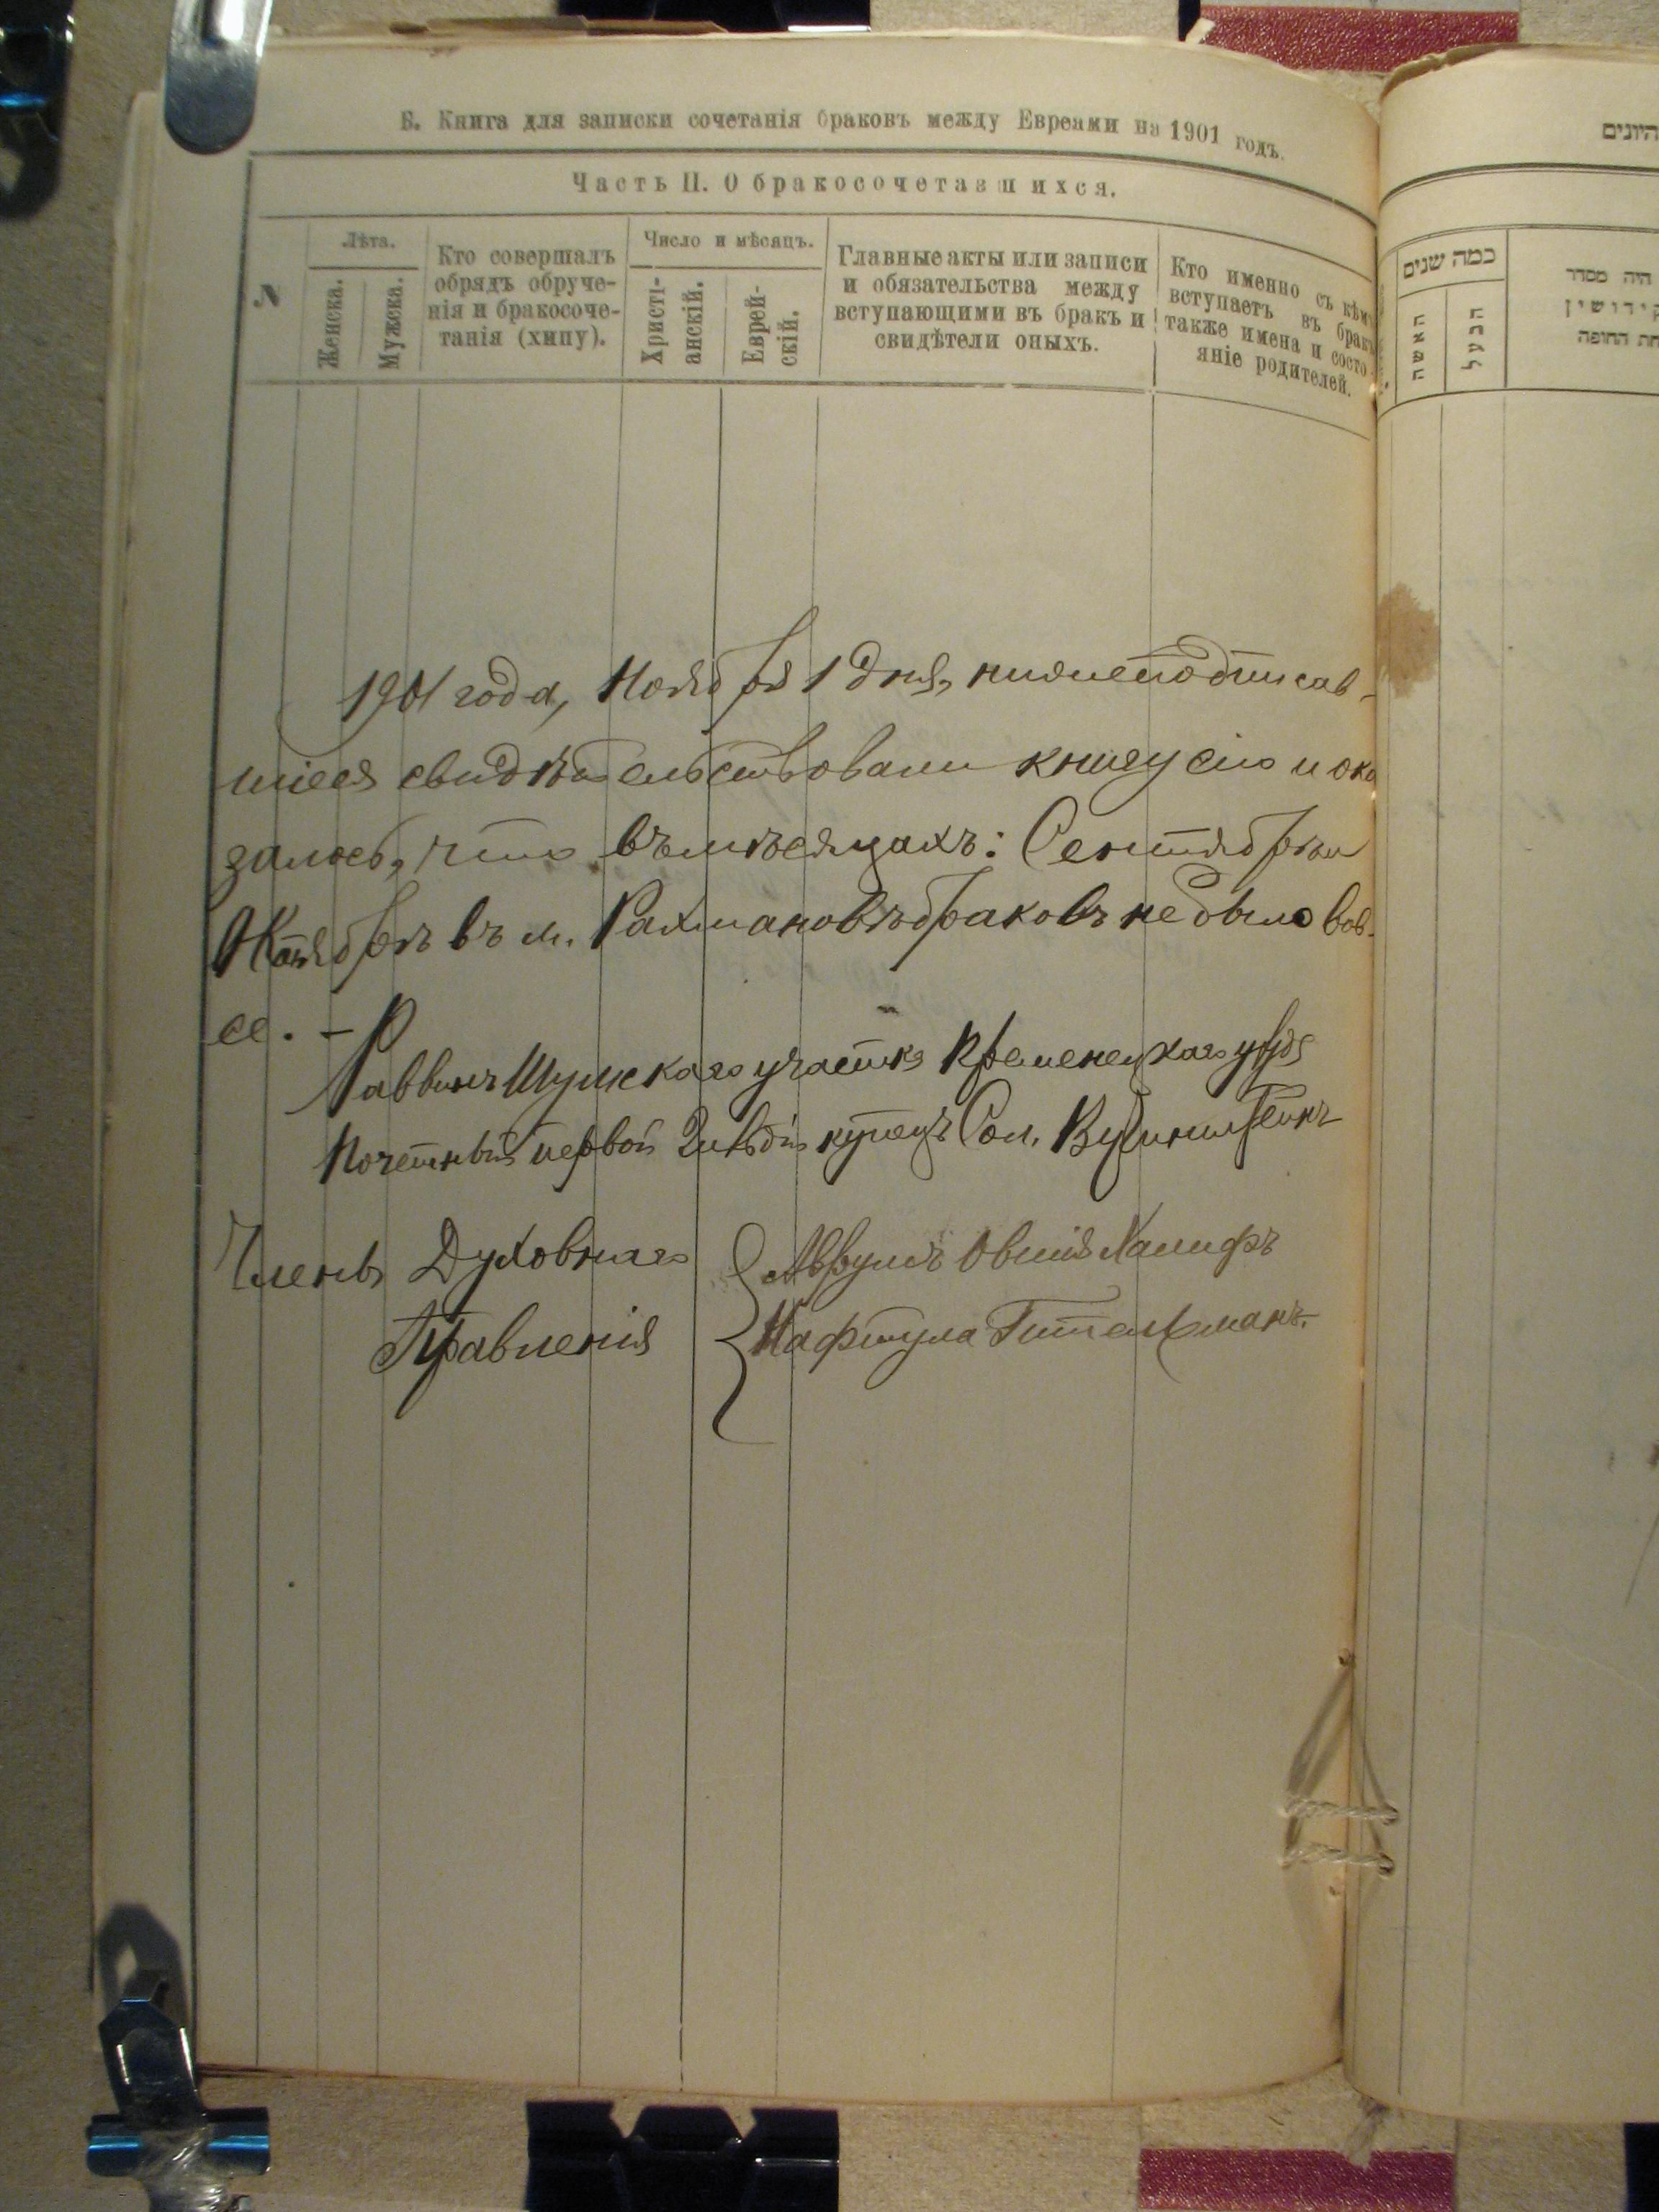 Б. Книга для записки сочетанія браковъ между Евреями на 1901 годъ.
Часть II. О бракосочетавшихся.
№
Лѣта.
Женска.
Мужска.
Кто совершалъ
обрядъ обруче-
нія и бракосоче-
танія (хипу).
Число и мѣсяцъ.
Христі-
анскій.
Еврей-
скій.
Главные акты или записи
и обязательства между
вступающими въ бракъ и
свидѣтели оныхъ.
Кто именно съ кѣмъ
вступаетъ въ бракъ
также имена и состо
яніе родителей.
1901 года, Ноября 1 дня, нижеподписав-
шіеся свидѣтельствовали книгу сію и ока
залось, что въ мѣсяцахъ: Сентябрѣ и
Октябрѣ въ м. Рахмановѣ браковъ не было вов-
се. —
Раввинъ Шумскаго участка Кременецкаго уѣзда
Почетный первой Гильдіи купецъ Сол.
Члены Духовнаго
Правленія
Аврумъ Овшія Халифъ
Нафтула Гительманъ.
היונים
כמה שנים
האשה
הבעל
היה מסדר
קידושין
תחת החופה